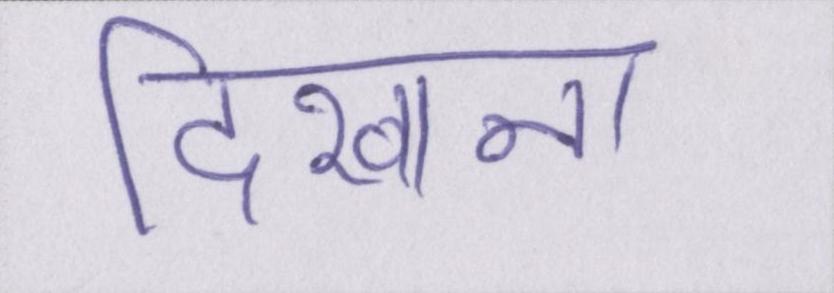 दिखाना